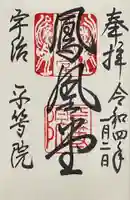 奉拝
令和四年一月二日
鳳凰堂
宇治
平等院